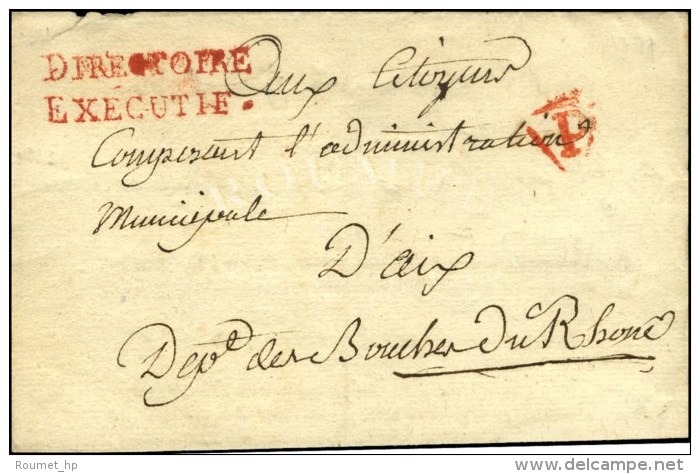 DIRECTOIRE
EXÉCUTIF.
Aux Citoyens
P
Composant l'administration
Municipale
D'aix
Dep.t des Bouches Du Rhone
Roumet_hp
delcampe.net